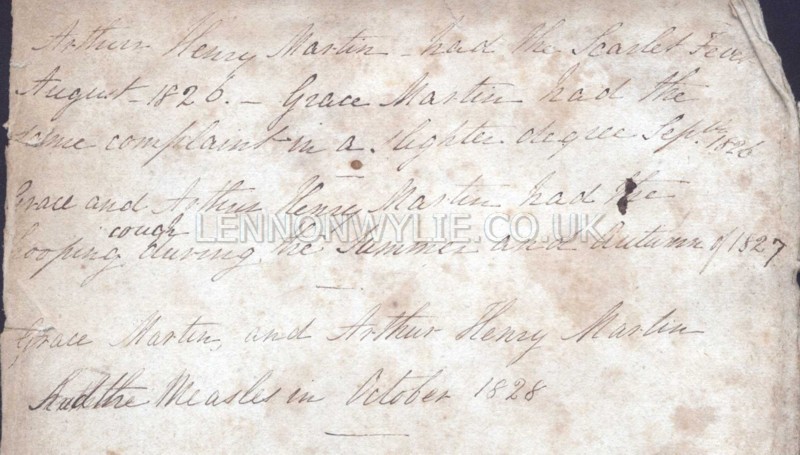 Arthur Henry Martin - had the Scarlet Fever
August - 1826. - Grace Martin had the
same complaint in a slighter degree Sepbr 1826
Grace and Arthur Henry Martin had the
LENNONWYLIE.CO.UK
cough
hooping during the Summer and Autumn of 1827
Grace Martin, and Arthur Henry Martin
had the Measles in October 1828